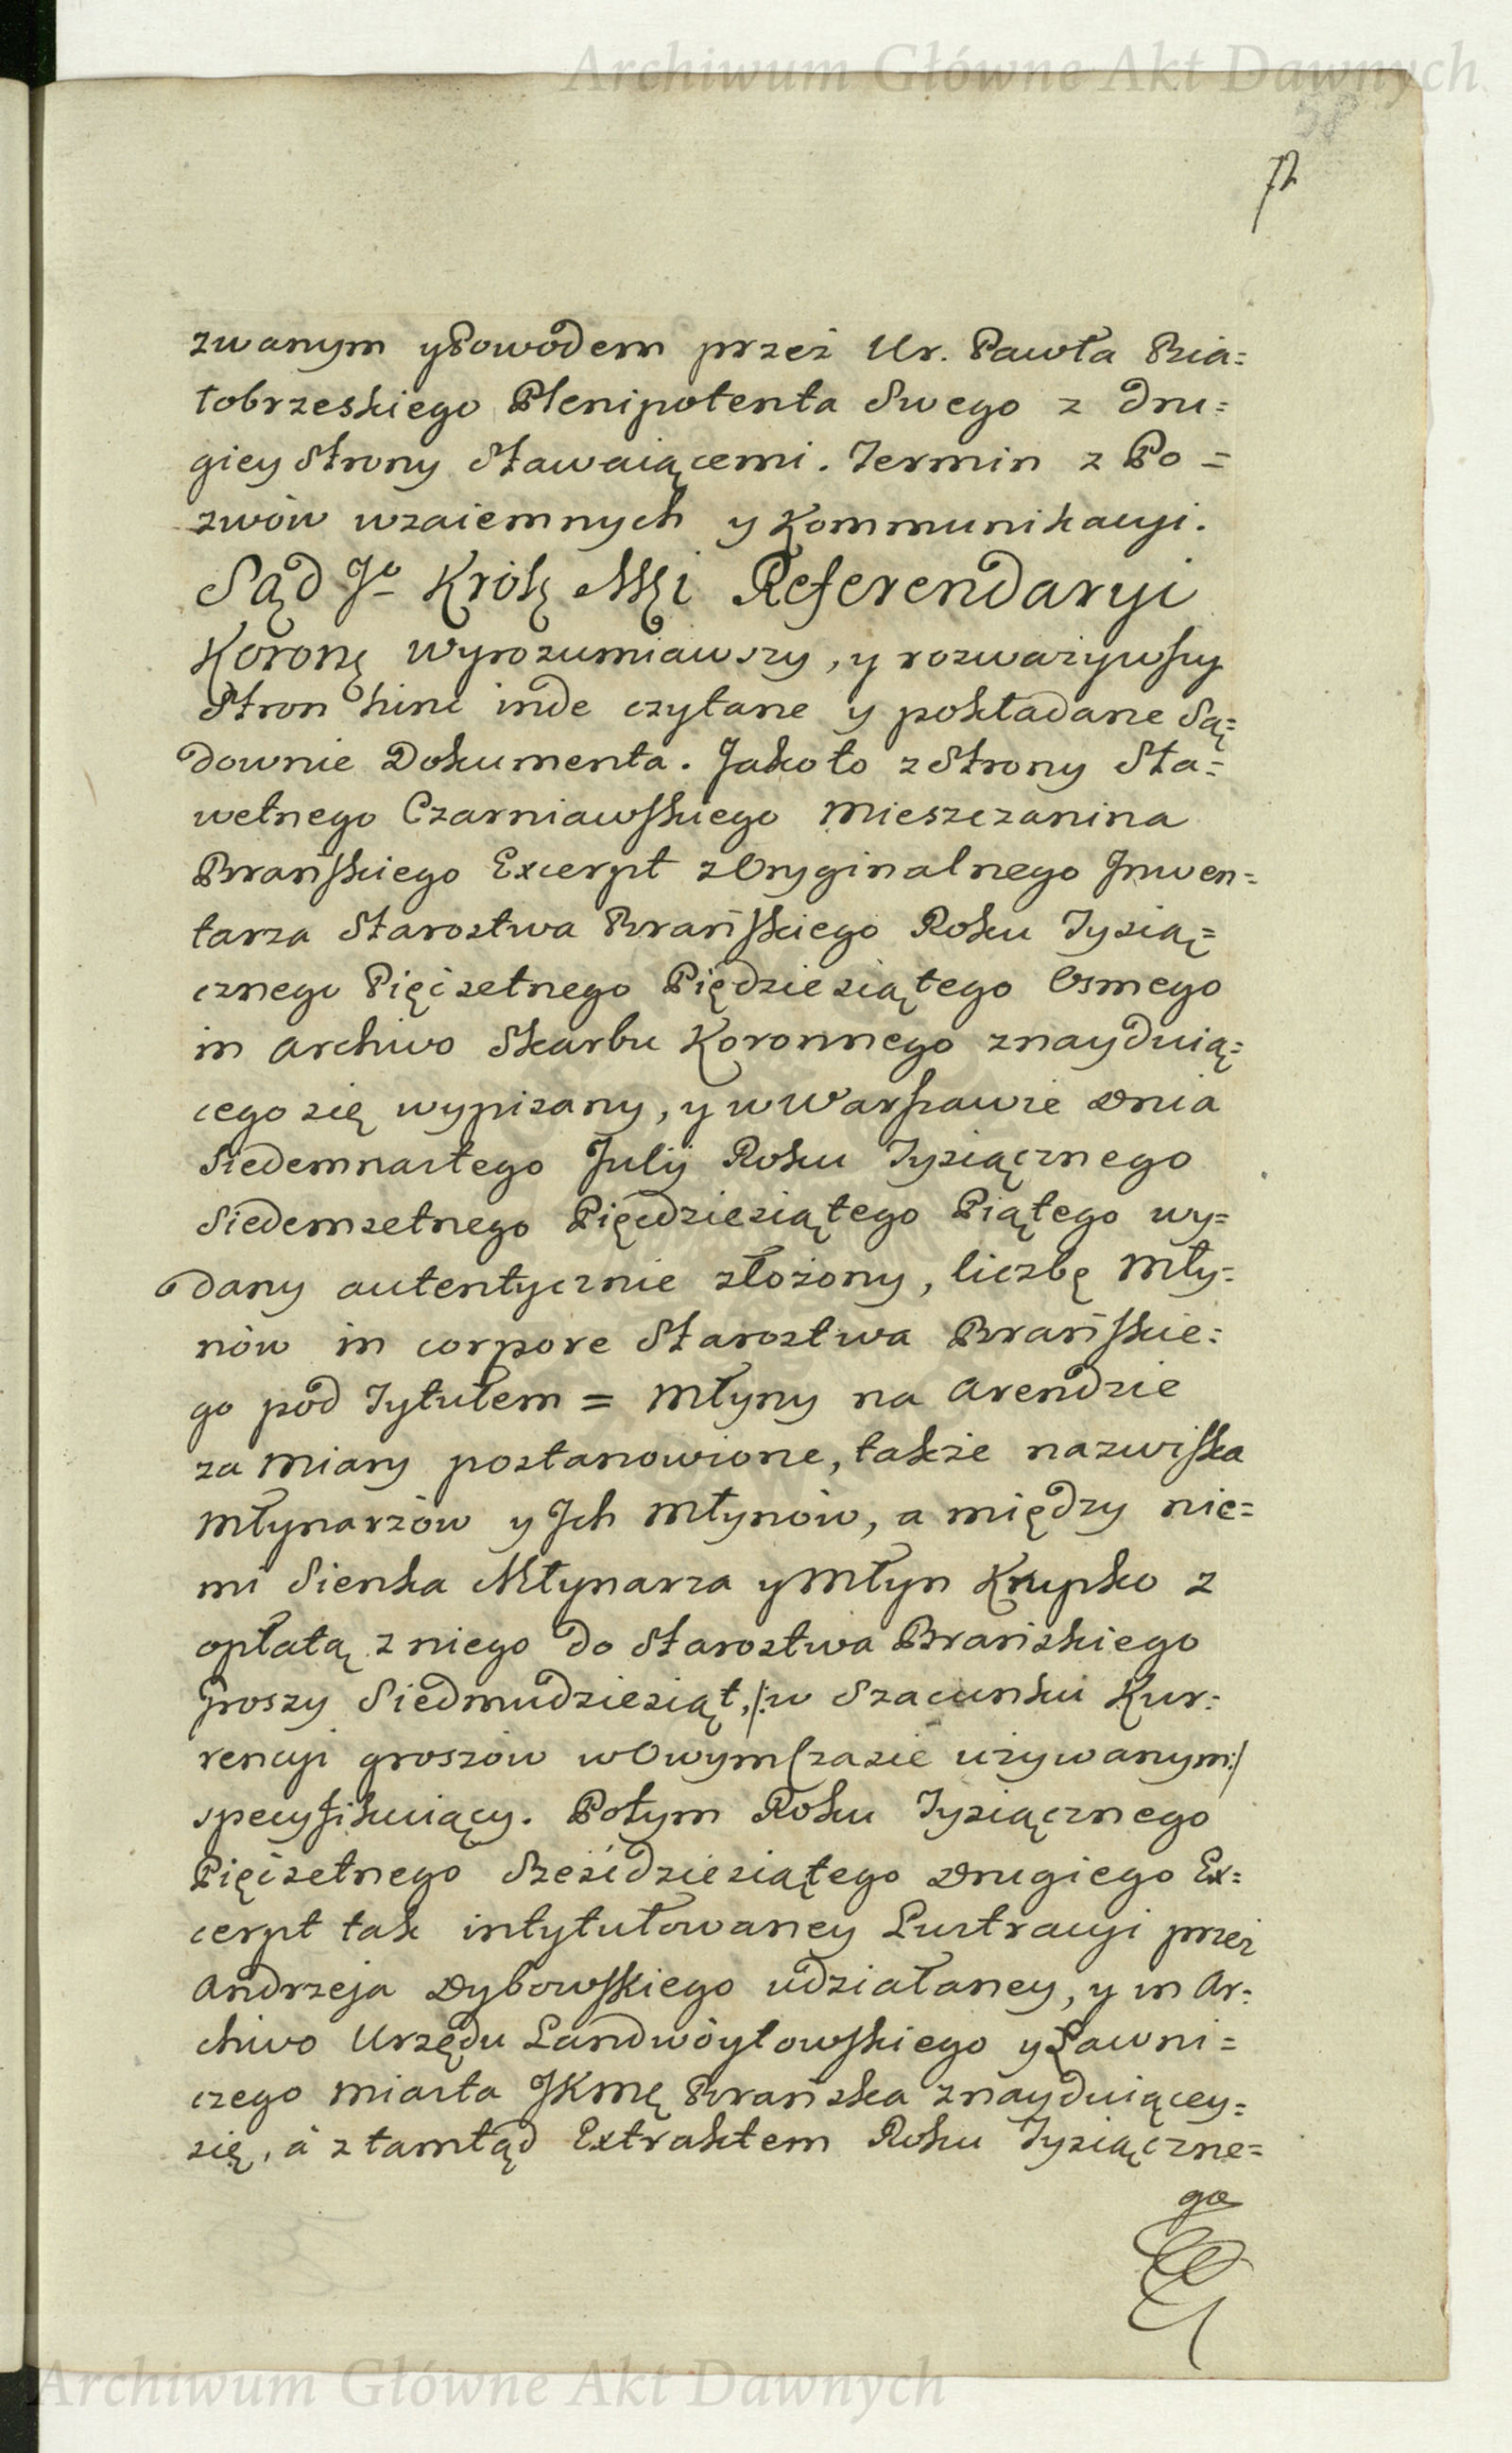 Archiwum Główne Akt Dawnych
58
72
zwanym y Powodem przez Ur. Pawła Bia=
łobrzeskiego Plenipotenta Swego z dru=
giey Strony Stawaiącemi. Termin z Po=
zwów wzaiemnych y Kommunikacyi.
Sąd Jo Krolę Męi Referendaryi
Koronę wyrozumiawszy, y rozważywszy
Stron hinc inde czytane y pokładane Są=
downie Dokumenta. Jako to z Strony Sła=
wetnego Czarniawskiego Mieszczanina
Brańskiego Excerpt z Oryginalnego Jnwen=
tarza Starostwa Brańskiego Roku Tysią=
cznego Pięćsetnego Piędziesiątego Osmego
in Archivo Skarbu Koronnego znayduią=
cego się wypisany, y w Warszawie Dnia
Siedemnastego Julij Roku Tysiącznego
Siedemsetnego Pięćdziesiątego Piątego wy=
dany autentycznie złożony, liczbę Mły=
nów in corpore Starostwa Brańskie=
go pod Tytułem = Młyny na Arendzie
za Miary postanowione, także nazwiska
Młynarzów y Jch Młynów, a między nie=
mi Sieńka Młynarza y Młyn Krupko z
opłatą z niego do Starostwa Brańskiego
Groszy Siedmudziesiąt, /:w Szacunku Kur=
rencyi groszów w Owym Czasie używanym:/
specyfikuiący. Potym Roku Tysiącznego
Pięćsetnego Sześćdziesiątego Drugiego Ex=
cerpt tak intytułowaney Lustracyi przez
Andrzeja Dybowskiego udziałaney, y in Ar=
chivo Urzędu Landwóytowskiego y Ławni=
czego Miasta JKMę Brańska znayduiącey=
się, a z tamtąd Extraktem Roku Tysiączne=
go
Archiwum Główne Akt Dawnych